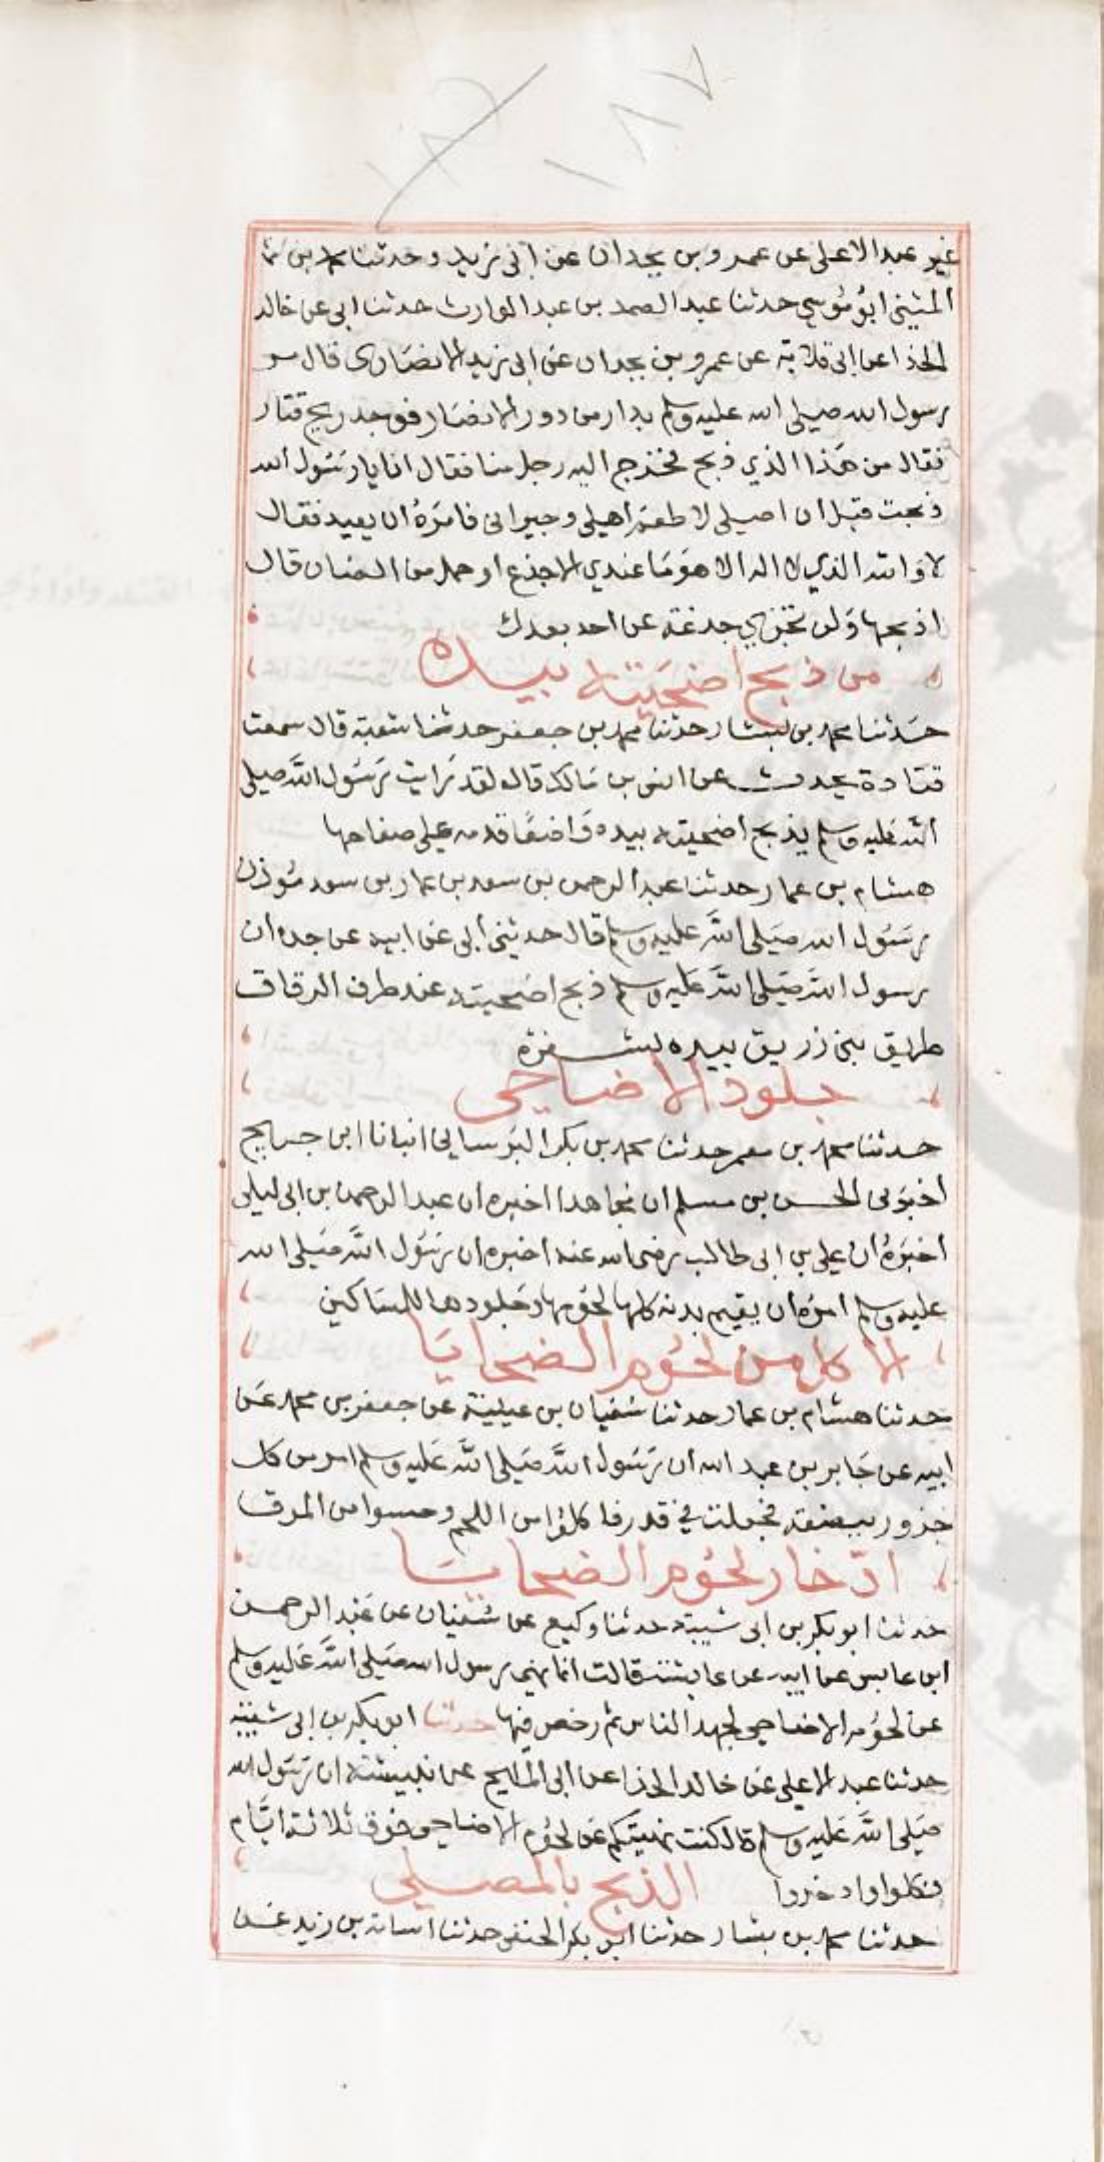 ١٨٧
غير عبد الاعلى عن عمرو بن بجدان عن ابى زيد وحدثنا محمد بن
المثنى ابو موسى حدثنا عبد الصمد بن عبد الوارث حدثنا ابى عن خالد
الحذا عن ابى قلابة عن عمرو بن بجدان عن ابى زيد الانصارى قال مر
رسول الله صلى الله عليه وسلم بدار من دور الانصار فوجد ريح قتار
فقال من هذا الذي ذبح فخرج اليه رجل منا فقال انا يا رسول الله
ذبحت قبل ان اصلى لاطعم اهلى وجيرانى فامره ان يعيد فقال
لا والله الذي لا اله الا هو ما عندي الا جذع او حمل من الضان قال
اذبحها ولن تجزي جذعة عن احد بعدك
من ذبح اضحيته بيده
حدثنا محمد بن بشار حدثنا محمد بن جعفر حدثنا شعبة قال سمعت
قتادة يحدث عن انس بن مالك قال لقد رايت رسول الله صلى
الله عليه وسلم يذبح اضحيته بيده واضعا قدمه على صفاحها
هشام بن عمار حدثنا عبد الرحمن بن سعد بن عمار بن سعد موذن
رسول الله صلى الله عليه وسلم قال حدثنى ابى عن ابيه عن جده ان
رسول الله صلى الله عليه وسلم ذبح اضحيته عند طرف الزقاق
طريق بنى زريق بيده بشفرة
جلود الاضاحى
حدثنا محمد بن معمر حدثنا محمد بن بكر البرسانى انبانا ابن جريج
اخبرنى الحسن بن مسلم ان مجاهدا اخبره ان عبد الرحمن بن ابى ليلى
اخبره ان على بن ابى طالب رضى الله عنه اخبره ان رسول الله صلى الله
عليه وسلم امره ان يقسم بدنه كلها لحومها وجلودها للمساكين
الاكل من لحوم الضحايا
حدثنا هشام بن عمار حدثنا سفيان بن عيينة عن جعفر بن محمد عن
ابيه عن جابر بن عبد الله ان رسول الله صلى الله عليه وسلم امر من كل
جزور ببضعة فجعلت في قدر فاكلوا من اللحم وحسوا من المرق
ادخار لحوم الضحايا
حدثنا ابو بكر بن ابى شيبة حدثنا وكيع عن سفيان عن عبد الرحمن
ابن عابس عن ابيه عن عايشة قالت انما نهى رسول الله صلى الله عليه وسلم
عن لحوم الاضاحى لجهد الناس ثم رخص فيها حدثنا ابو بكر بن ابى شيبة
حدثنا عبد الاعلى عن خالد الحذا عن ابى المليح عن نبيشة ان رسول الله
صلى الله عليه وسلم قال كنت نهيتكم عن لحوم الاضاحى فوق ثلاثة ايام
فكلوا وادخروا الذبح بالمصلى
حدثنا محمد بن بشار حدثنا ابو بكر الحنفى حدثنا اسامة بن زيد عن